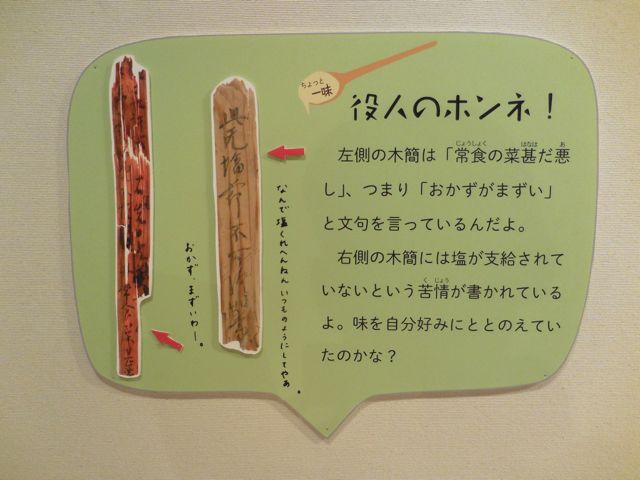 ちょっと
一味
役人のホンネ！
左側の木簡は「常食の菜甚だ悪
し」、つまり「おかずがまずい」
と文句を言っているんだよ。
右側の木簡には塩が支給されて
いないという苦情が書かれている
よ。味を自分好みにととのえてい
たのかな？
じょうしょく
はなは
あ
くじょう
なんで塩くれへんねん いつものようにしてやぁ。
おかず、まずいわー。